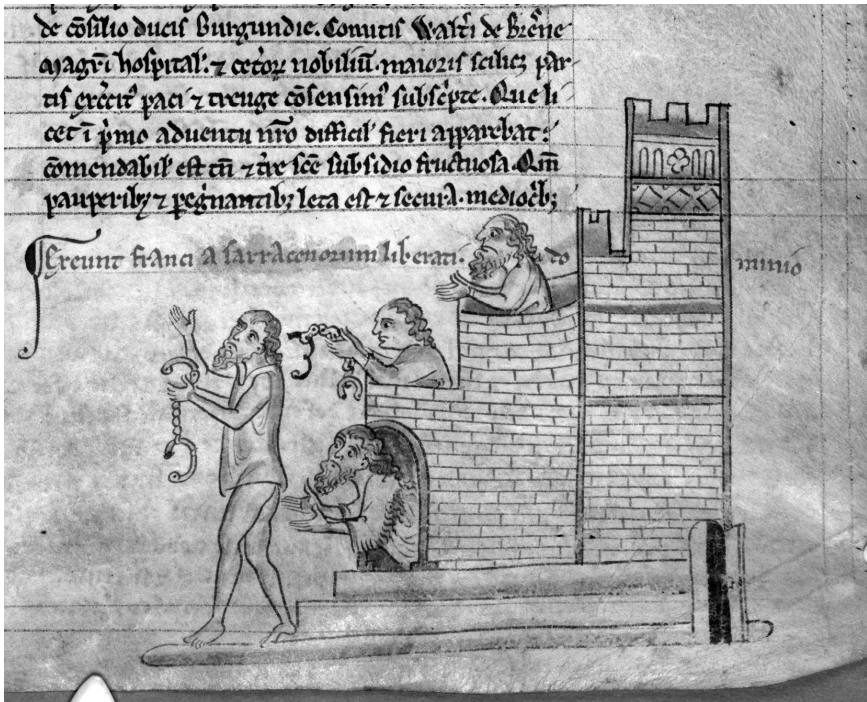 de cōsilio ducis Burgundie. Comitis Walt̄i de Brēne
Magr̄i hospital'. ⁊ cet̄oꝝ nobiliū. maioris scilicꝫ par-
tis exc̄cit᷒ paci ⁊ treuge cōsensim᷒ subsc̄pte. Que li
cet ī p̄mo adventu nr̄o difficil' fieri apparebat:
cōmendabil' est tn̄ ⁊ t̄re sc̄e subsidio fructuosa. Qm̄
pauperibꝫ ⁊ pegⁱnantibꝫ leta est ⁊ secura. mediocⁱbꝫ
Exeunt franci a sarracenorum liberati. do minio